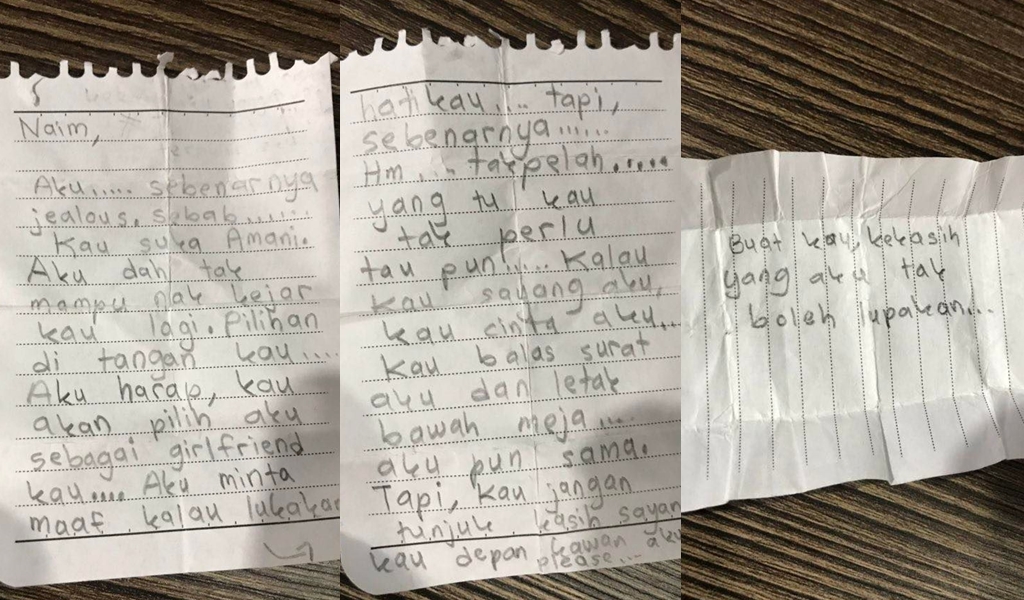 Naim,
Aku..... sebenarnya
jealous. sebab.......
Kau suka Amani.
Aku dah tak
mampu nak kejar
kau lagi. Pilihan
di tangan kau....
Aku harap, kau
akan pilih aku
sebagai girlfriend
kau.... Aku minta
maaf kalau lukakan
hati kau.... tapi,
sebenarnya......
Hm.... takpelah.....
yang tu kau
tak perlu
tau pun.... Kalau
kau sayang aku,
kau cinta aku...
Kau balas surat
aku dan letak
bawah meja...
aku pun sama.
Tapi, kau jangan
tunjuk kasih sayan
kau depan kawan aku
please...
Buat kau, kekasih
yang aku tak
boleh lupakan...